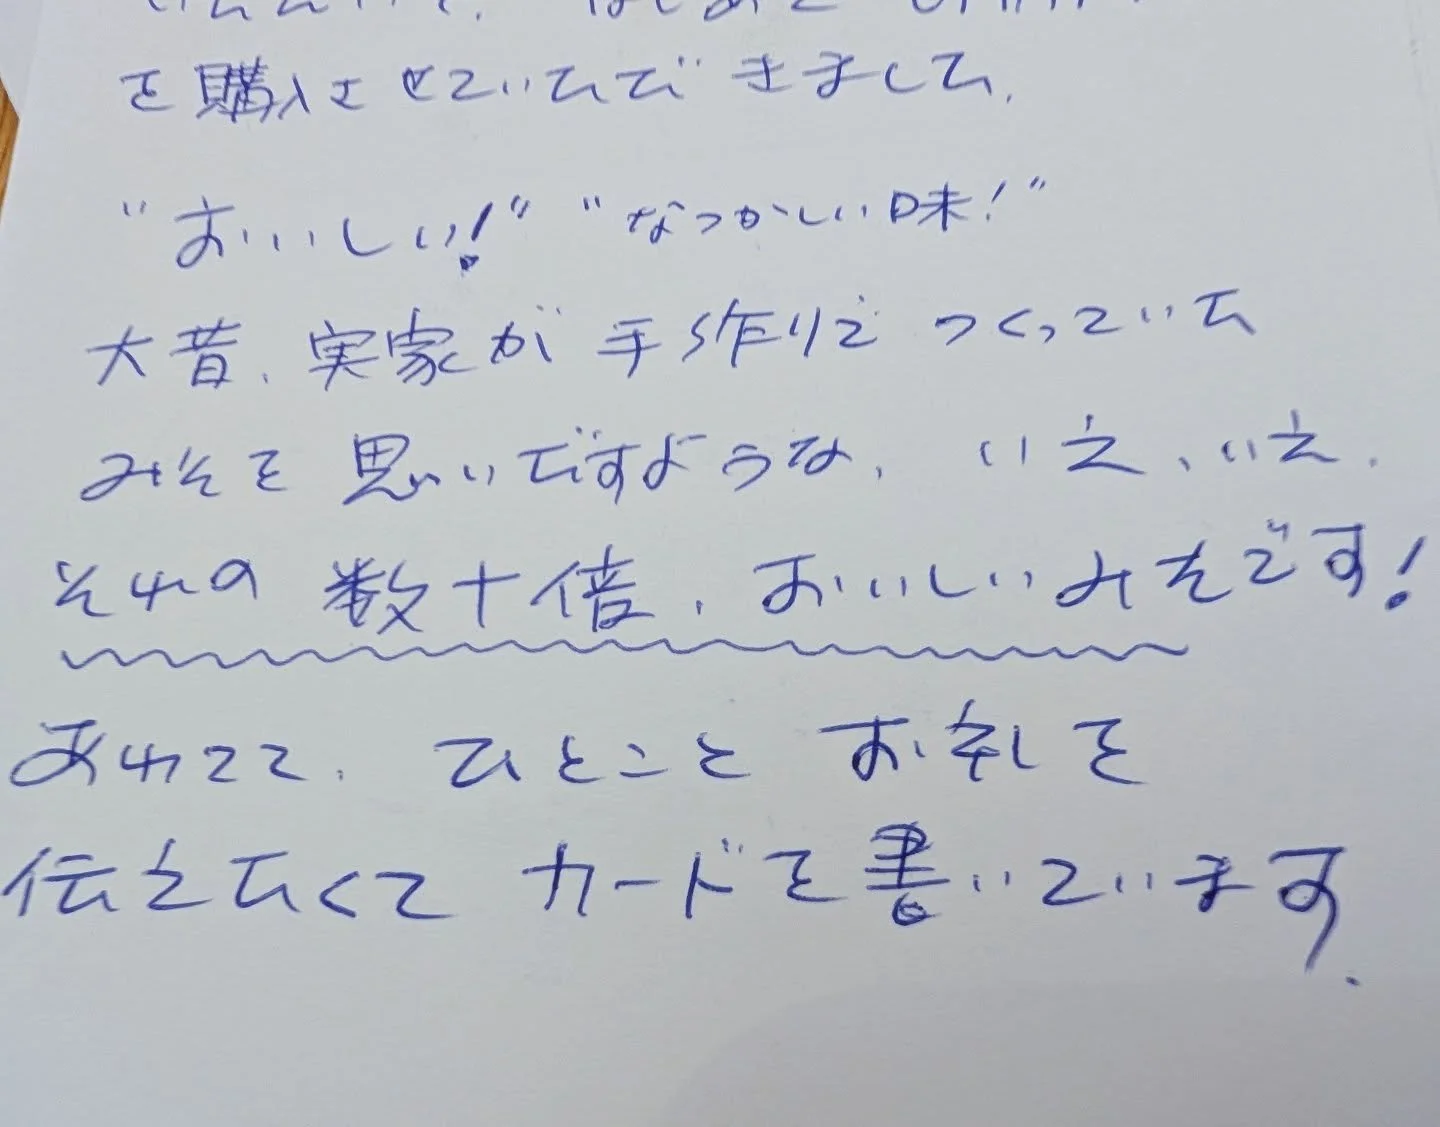 を購入させていただきました.
"おいしい!" "なつかしい味!"
大昔.実家が手作りでつくっていた
みそを思いですような、いえ、いえ.
それの数十倍.おいしいみそです!
あわてて.ひとことお礼を
伝えたくてカードを書いています.